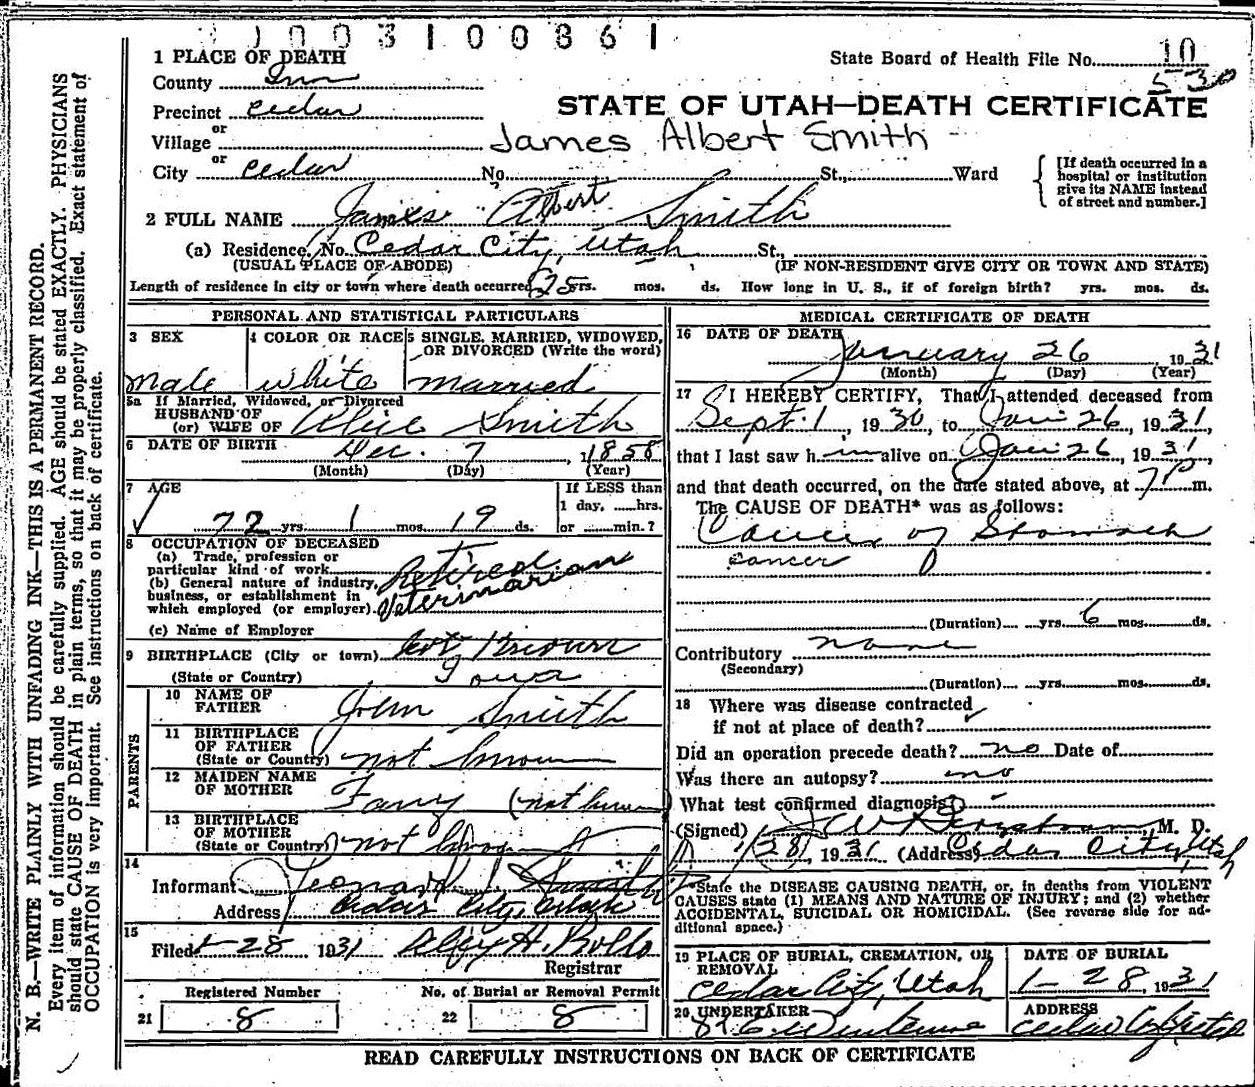 1 0 0 3 1 0 0 8 6 1
1 PLACE OF DEATH
State Board of Health File No. 10
530
County Iron
Precinct Cedar
STATE OF UTAH—DEATH CERTIFICATE
or
Village
James Albert Smith
or
City Cedar No. St., Ward
[If death occurred in a hospital or institution give its NAME instead of street and number.]
2 FULL NAME James Albert Smith
(a) Residence, No. Cedar City, Utah St.,
(USUAL PLACE OF ABODE) (IF NON-RESIDENT GIVE CITY OR TOWN AND STATE)
Length of residence in city or town where death occurred 25 yrs. mos. ds. How long in U. S., if of foreign birth? yrs. mos. ds.
PERSONAL AND STATISTICAL PARTICULARS
3 SEX
male
4 COLOR OR RACE
white
5 SINGLE, MARRIED, WIDOWED, OR DIVORCED (Write the word)
married
5a If Married, Widowed, or Divorced
HUSBAND OF
(or) WIFE OF Alice Smith
6 DATE OF BIRTH Dec. 7, 1858
(Month) (Day) (Year)
7 AGE
72 yrs. 1 mos. 19 ds.
If LESS than
1 day, ......hrs.
or ......min.?
8 OCCUPATION OF DECEASED
(a) Trade, profession or
particular kind of work Retired
(b) General nature of industry,
business, or establishment in
which employed (or employer) Veterinarian
(c) Name of Employer
9 BIRTHPLACE (City or town)
(State or Country) Iowa
PARENTS
10 NAME OF FATHER John Smith
11 BIRTHPLACE OF FATHER (State or Country) not known
12 MAIDEN NAME OF MOTHER Fanny (not known)
13 BIRTHPLACE OF MOTHER (State or Country) not known
14
Informant Leonard J. Smith
Address Cedar City, Utah
15
Filed 1-28 1931
Registrar
Registered Number
21 8
No. of Burial or Removal Permit
22 8
MEDICAL CERTIFICATE OF DEATH
16 DATE OF DEATH
January 26, 1931
(Month) (Day) (Year)
17 I HEREBY CERTIFY, That I attended deceased from
Sept. 1, 1930, to Jan 26, 1931,
that I last saw h im alive on Jan 26, 1931,
and that death occurred, on the date stated above, at 7 P m.
The CAUSE OF DEATH* was as follows:
Cancer of Stomach
cancer
(Duration) yrs. 6 mos. ds.
Contributory none
(Secondary)
(Duration) yrs. mos. ds.
18 Where was disease contracted
if not at place of death?
Did an operation precede death? no Date of
Was there an autopsy? no
What test confirmed diagnosis?
(Signed) M. D.
1/28, 1931 (Address) Cedar City, Utah
*State the DISEASE CAUSING DEATH, or, in deaths from VIOLENT
CAUSES state (1) MEANS AND NATURE OF INJURY; and (2) whether
ACCIDENTAL, SUICIDAL OR HOMICIDAL. (See reverse side for ad-
ditional space.)
19 PLACE OF BURIAL, CREMATION, OR REMOVAL
Cedar City, Utah
DATE OF BURIAL
1-28, 1931
20 UNDERTAKER
ADDRESS
Cedar City, Utah
READ CAREFULLY INSTRUCTIONS ON BACK OF CERTIFICATE
N. B.—WRITE PLAINLY WITH UNFADING INK—THIS IS A PERMANENT RECORD.
Every item of information should be carefully supplied. AGE should be stated EXACTLY. PHYSICIANS
should state CAUSE OF DEATH in plain terms, so that it may be properly classified. Exact statement of
OCCUPATION is very important. See instructions on back of certificate.